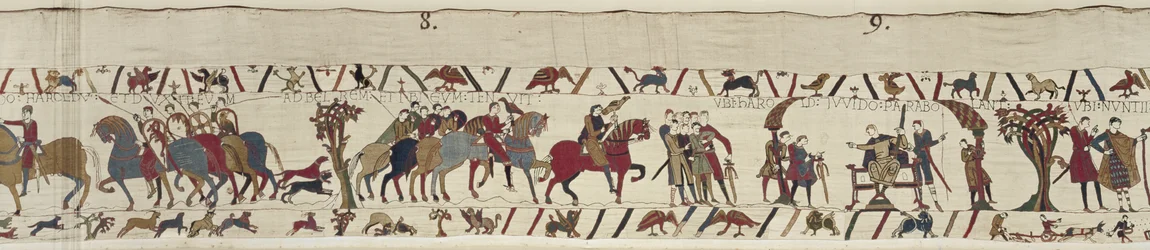 8. 9.
DO: HAROLDV: ET DVXIT EVM AD BELREM: ET IBI EVM: TENVIT: VBI: HAROLD: 7 VVIDO: PARABOLANT: VBI: NVNTII